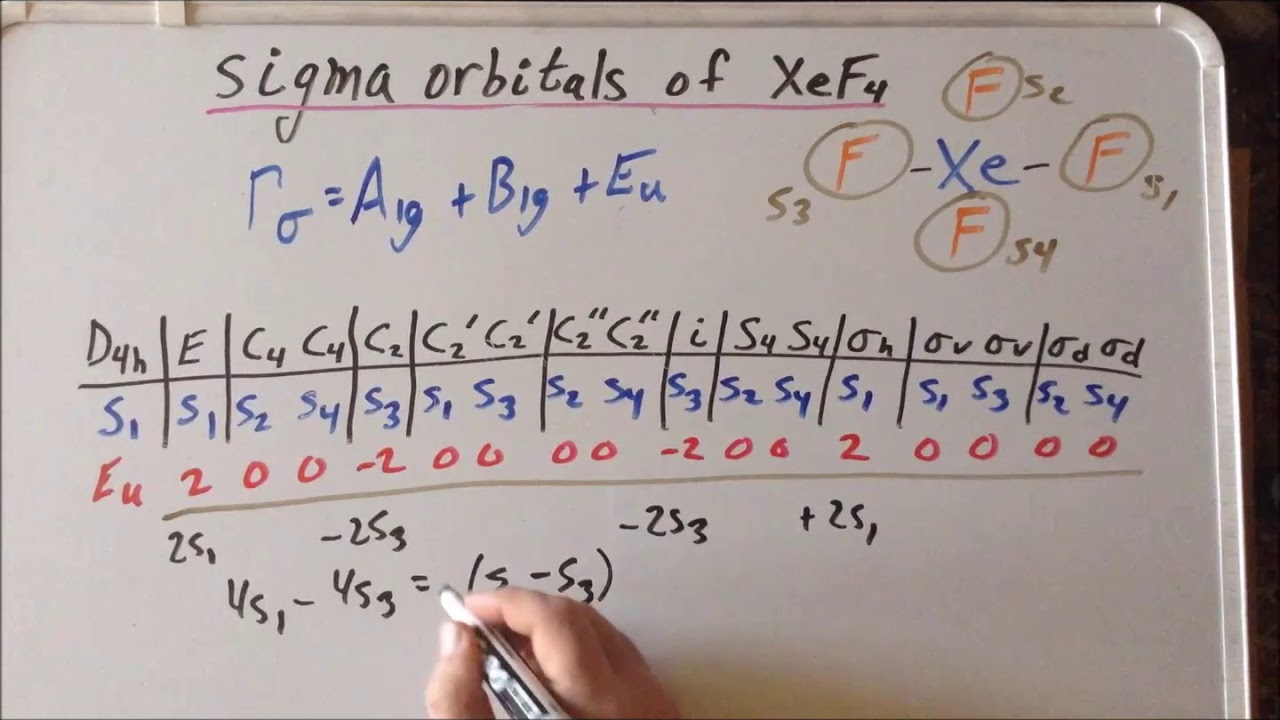 Sigma orbitals of XeF₄
F S₂
Γσ = A₁g + B₁g + Eᵤ
F - Xe - F
S₃ S₁
F S₄
D₄h | E | C₄ C₄ | C₂ | C₂' C₂' | C₂" C₂" | i | S₄ S₄ | σh | σv σv | σd σd
S₁ | S₁ | S₂ S₄ | S₃ | S₁ S₃ | S₂ S₄ | S₃ | S₂ S₄ | S₁ | S₁ S₃ | S₂ S₄
Eᵤ 2 0 0 -2 0 0 0 0 -2 0 0 2 0 0 0 0
2S₁ -2S₃ -2S₃ +2S₁
4S₁ - 4S₃ = (S - S₃)